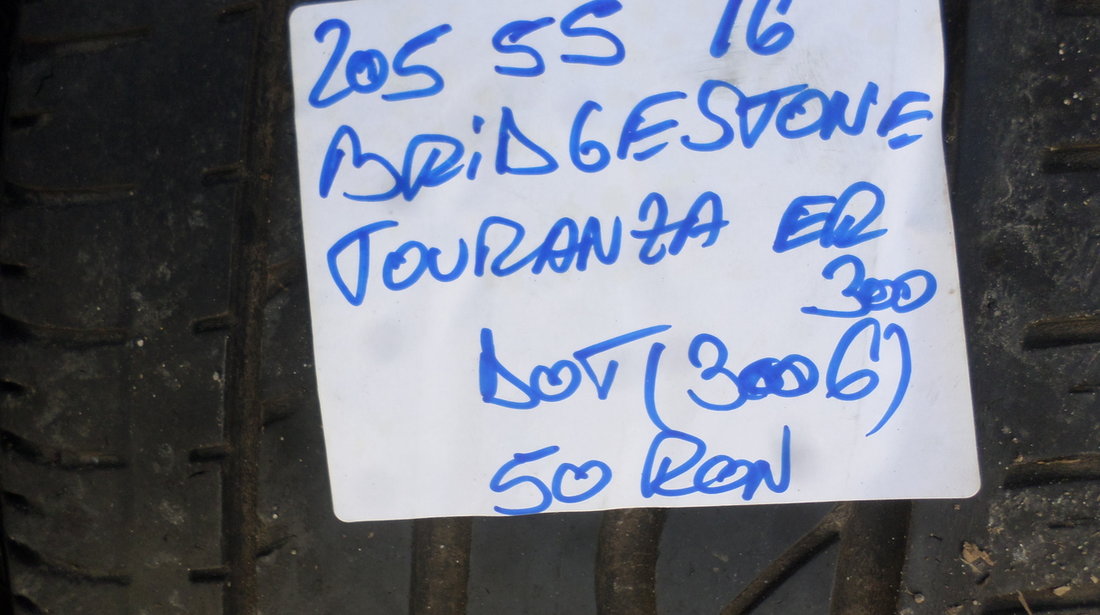 205 55 16
BRiDGESTONE
TOURANZA ER
300
DOT (3006)
50 RON